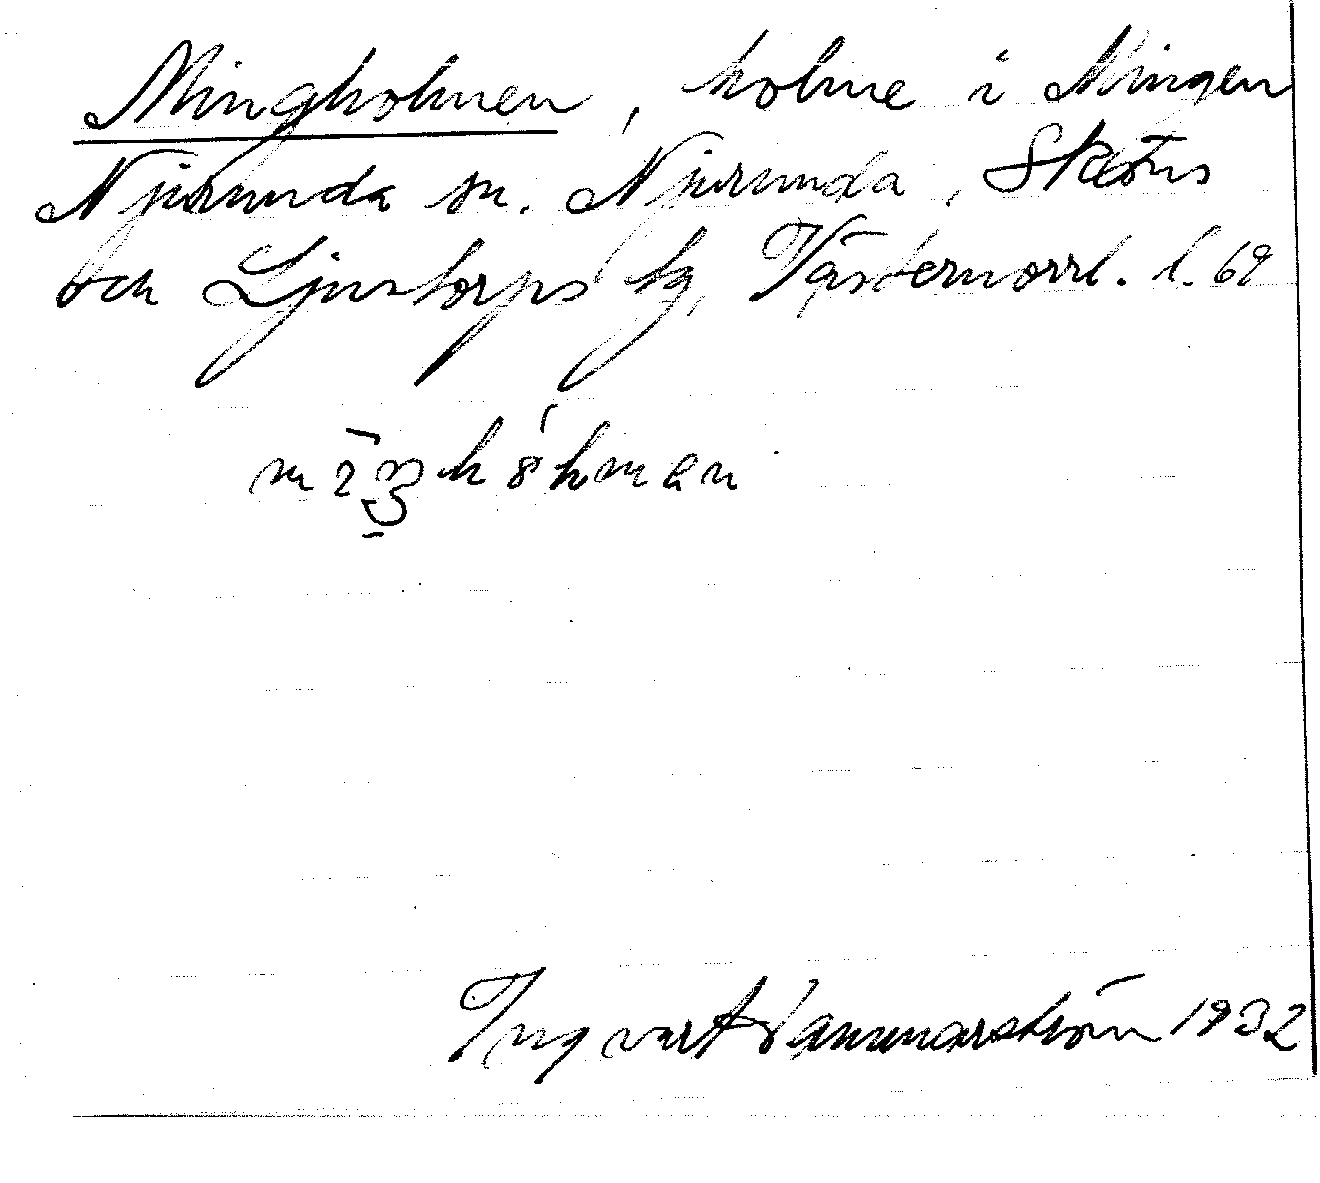 Mingholmen, holme i Mingen
Njurunda sn. Njurunda, Sköns
och Ljustorps tg, Västernorrl. l. 69
Ingvar Hammarström 1932